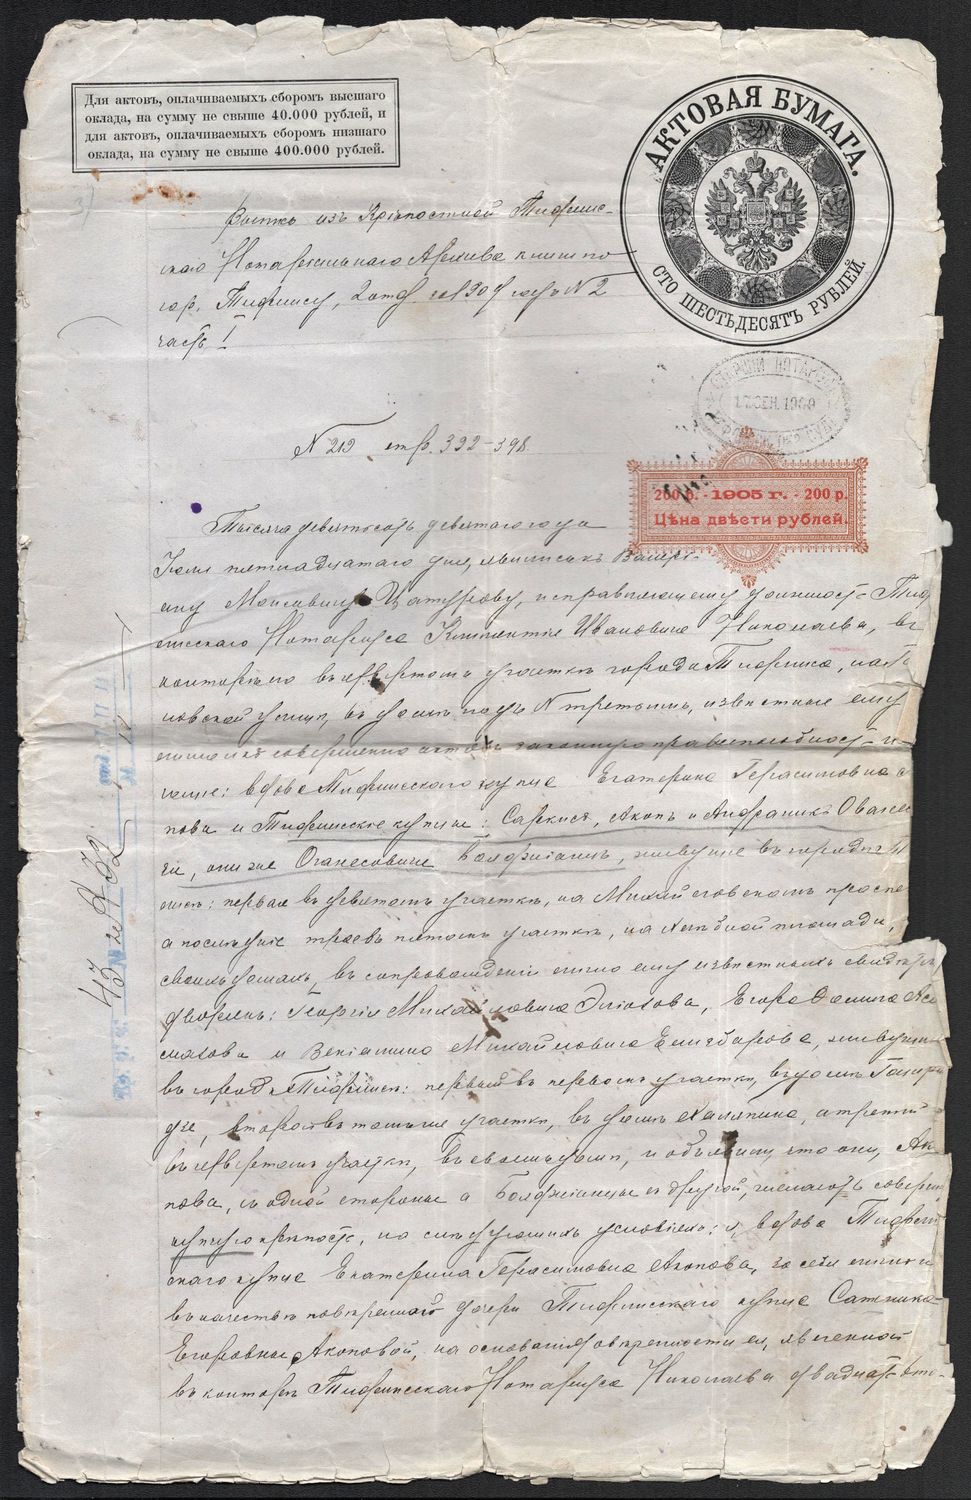 Для актовъ, оплачиваемыхъ сборомъ высшаго
оклада, на сумму не свыше 40.000 рублей, и
для актовъ, оплачиваемыхъ сборомъ низшаго
оклада, на сумму не свыше 400.000 рублей.
АКТОВАЯ БУМАГА.
СТО ШЕСТЬДЕСЯТЪ РУБЛЕЙ.
изъ Крѣпостной Тифлис-
скаго Нотаріальнаго Архива книги по
гор. Тифлису, 1909 годъ N 2
часть I
СТАРШІЙ НОТАРІУСЪ
17 СЕН. 1909
N 212 стр. 392-398
200 р. - 1905 г. - 200 р.
Цѣна двѣсти рублей.
Тысяча девятьсотъ девятаго года
Іюля пятнадцатаго дня, явились къ Валері-
ану Моисеевичу Цатурову, исправляющему должность Тиф
лисскаго Нотаріуса Климентія Ивановича Николаева, въ
контору его въ четвертомъ участкѣ города Тифлиса, на
ловской улицѣ, въ домѣ подъ N третьимъ, извѣстные ему
лично и къ совершенію актовъ законную правоспособность и-
вдова Тифлисскаго купца Екатерина Герасимовна А
пова и Тифлисскіе купцы: Саркисъ, Акопъ и Андраникъ Ованесо
они же Оганесовичи живущіе въ городѣ Ти
лисѣ: первая въ девятомъ участкѣ, на Михайловскомъ проспе
а послѣдніе трое въ пятомъ участкѣ, на Хлѣбной площади,
своихъ домахъ, въ сопровожденіи лично ему извѣстныхъ свидѣте
дворянъ: Георгія Михайловича Эліозова, Егора
и Веніамина Михайловича живущихъ
въ городѣ Тифлисѣ: первый въ первомъ участкѣ, въ домѣ
дзе, второй въ томъ же участкѣ, въ домѣ а третій
въ четвертомъ участкѣ, въ своемъ домѣ, и объявили, что они, Ак
пова, съ одной стороны а съ другой, желаютъ соверш
купчую крѣпость, на слѣдующихъ условіяхъ: я, вдова Тифлис
скаго купца Екатерина Герасимовна Акопова, за себя лично и
въ качествѣ повѣреннаго дочери Тифлисскаго купца
Егоровны Акоповой, на основаніи довѣренности ея, явленной
въ конторѣ Тифлисскаго Нотаріуса Николаева двадцать вто-